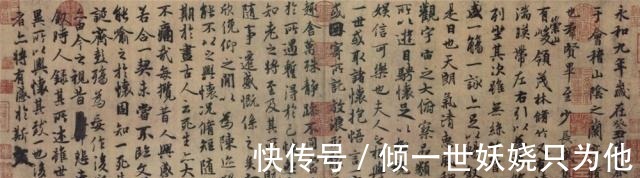 永和九年歲在
于會稽山陰之蘭
也群賢畢至少長
崇山
有峻領茂林脩竹
湍暎帶左右引以
列坐其次雖無絲
盛一觴一詠亦足
是日也天朗氣清
觀宇宙之大俯察品類
所以遊目騁懷足以
娛信可樂也夫人之相
世或取諸懷抱悟言
或因寄所託放浪
趣舍萬殊靜躁不
於所遇蹔得於己
老之將至及其所
隨事遷感慨係之矣
欣俛仰之閒以為陳迹
能不以之興懷況脩短隨
期於盡古人云死生亦大
不痛哉每攬昔人興
若合一契未嘗不臨文
能喻之於懷固知一死生
誕齊彭殤為妄作後
今之視昔
敘時人錄其所述雖世
異所以興懷其致一也後
者亦將有感於斯
快传号 / 倾一世妖娆只为他